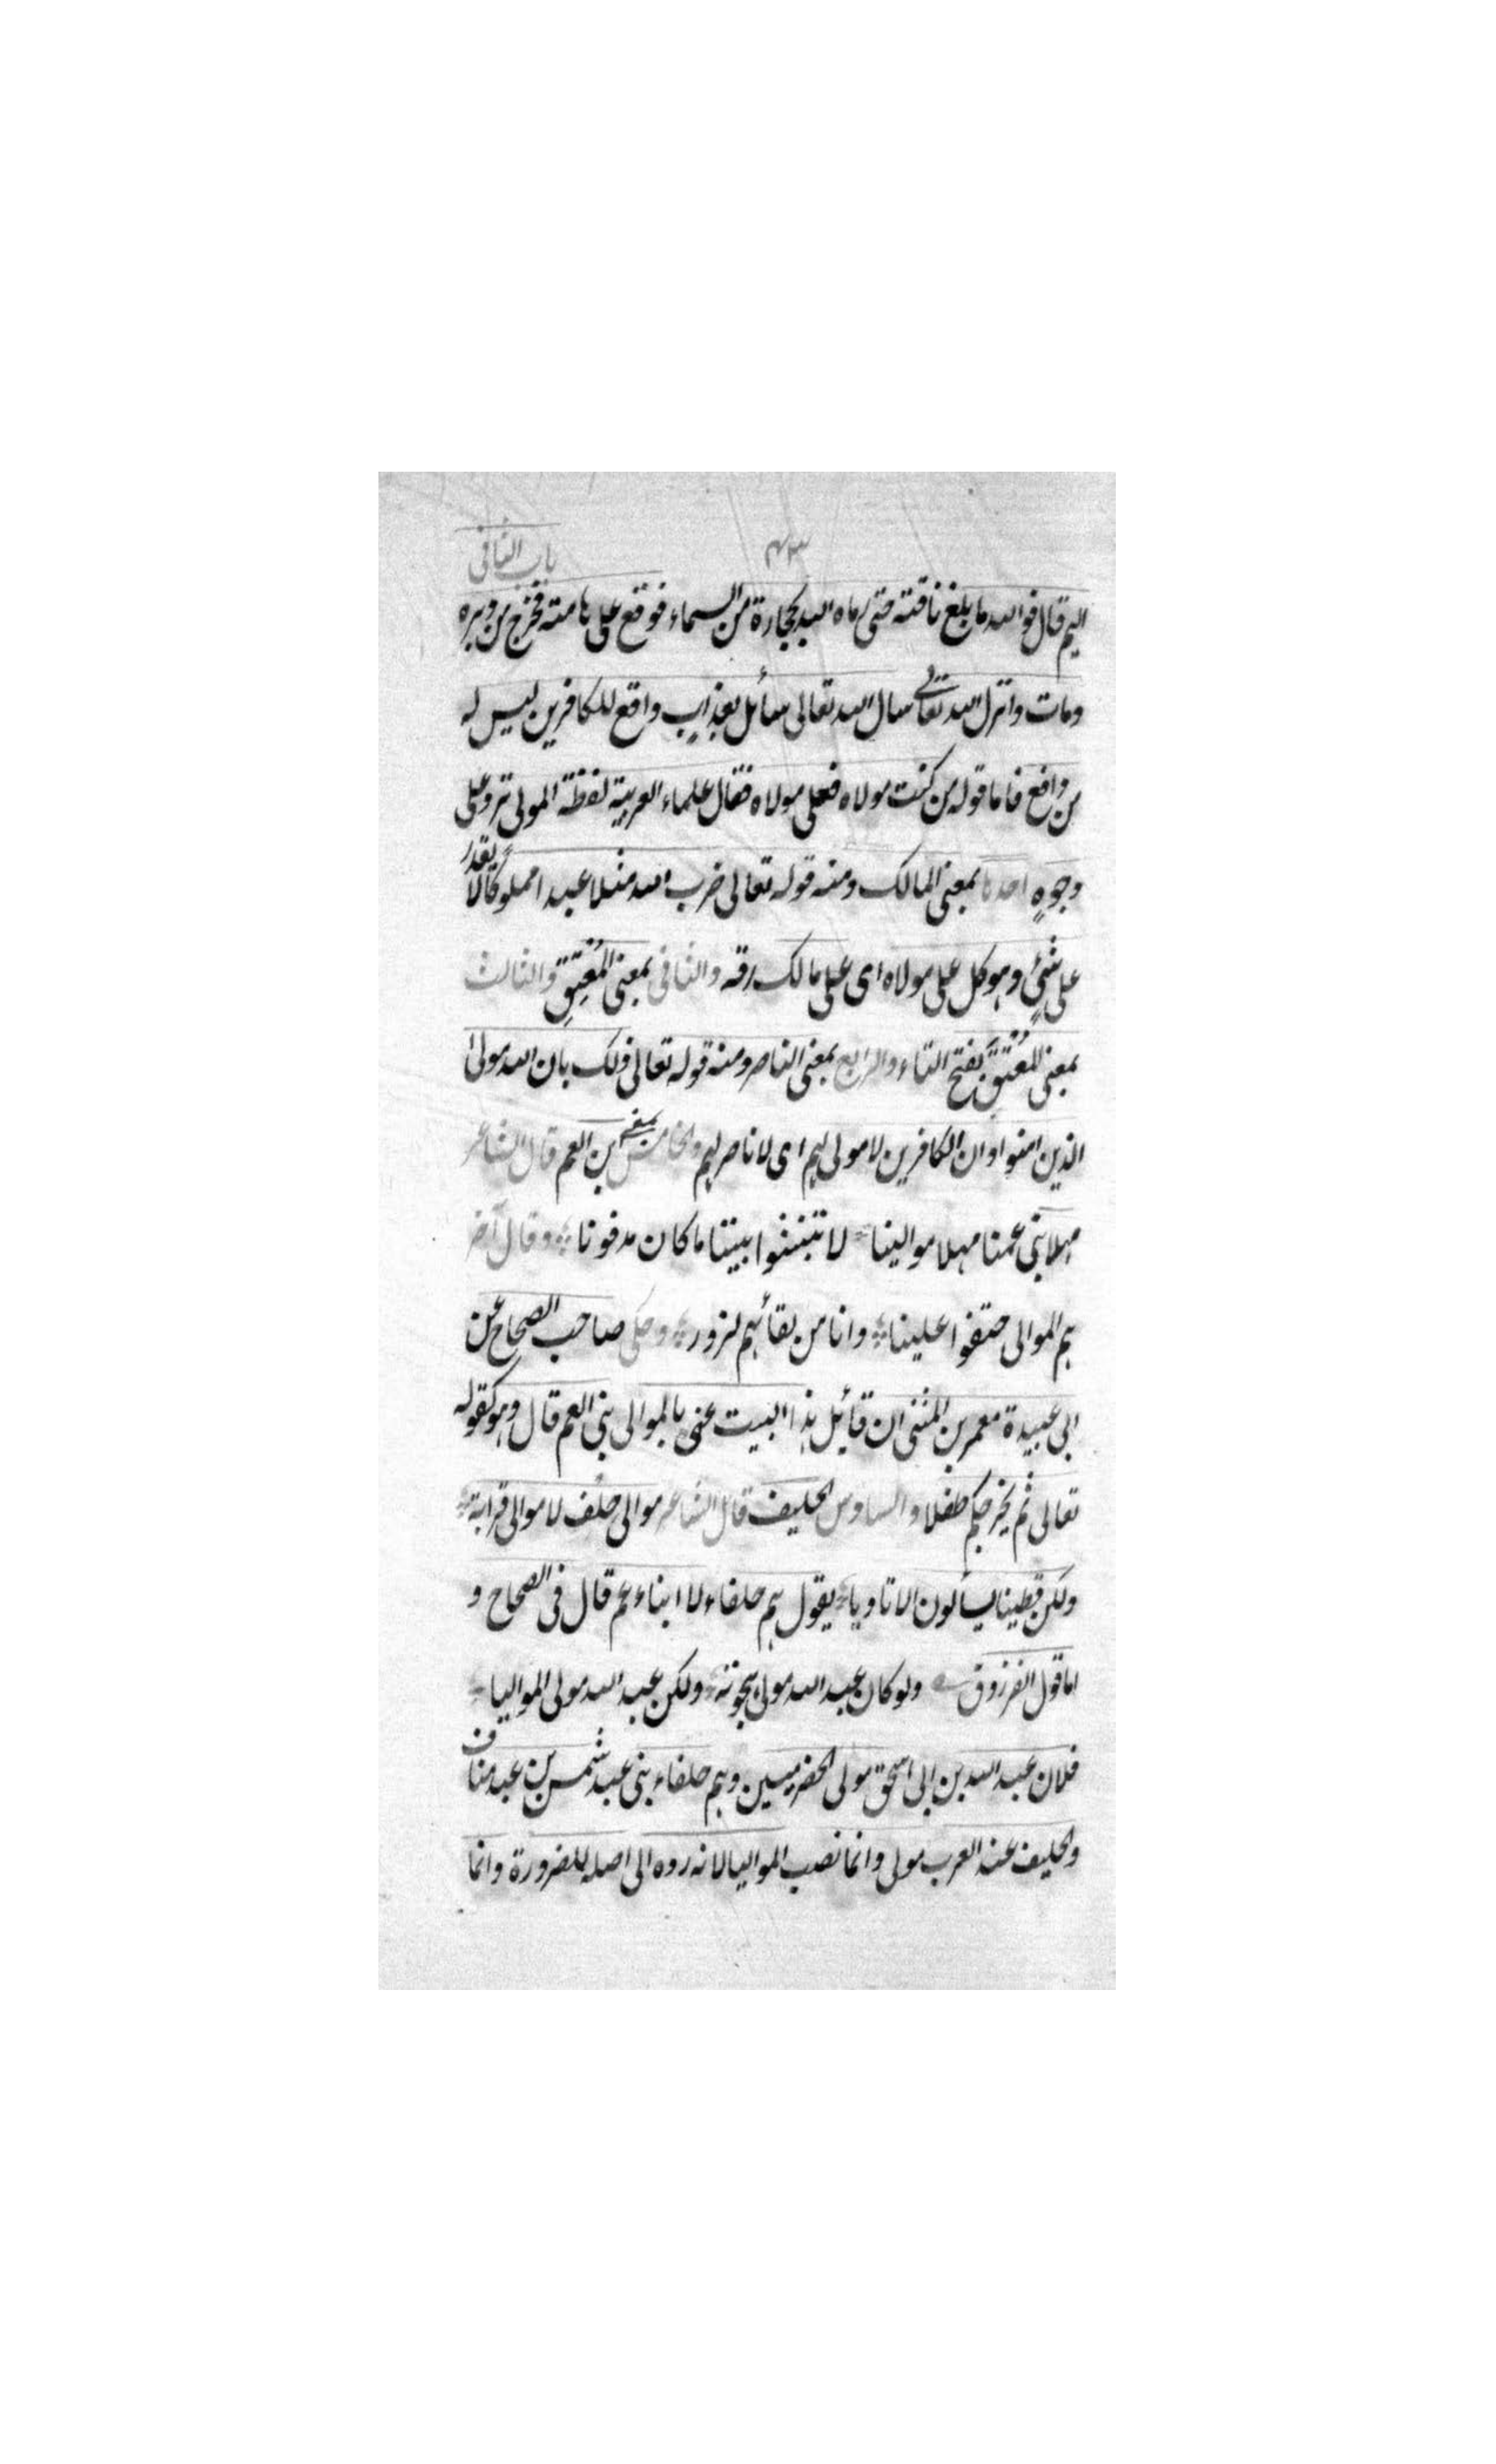 ۴۳ باب الثانی
اليم قال فوالله ما بلغ ناقته حتى رماه الله بحجارة من السماء فوقع على هامته فخرج من دبره
ومات وانزل الله تعالى سال الله تعالى سائل بعذاب واقع للكافرين ليس له
من دافع فاما قوله من كنت مولاه فعلى مولاه فقال علماء العربية لفظة المولى ترد على
وجوه احدها بمعنى المالك ومنه قوله تعالى ضرب الله مثلا عبدا مملوكا لا يقدر
على شئ وهو كل على مولاه اى على مالك رقه والثانى بمعنى المُعتِق والثالث
بمعنى المُعتَق بفتح التاء والرابع بمعنى الناصر ومنه قوله تعالى ذلك بان الله مولى
الذين امنوا وان الكافرين لا مولى لهم اى لا ناصر لهم والخامس بمعنى ابن العم قال الشاعر
مهلا بنى عمنا مهلا موالينا لا تنبشوا بيننا ما كان مدفونا وقال آخر
هم الموالى حتفوا علينا وانا من لقائهم لزور وحكى صاحب الصحاح عن
ابى عبيدة معمر بن المثنى ان قائل هذا البيت عنى بالموالى بنى العم قال وهو كقوله
تعالى ثم يخرجكم طفلا والسادس الحليف قال الشاعر موالى حلف لا موالى قرابة
ولكن قطينا يسألون الاتاويا يقول هم حلفاء لا ابناء عم قال فى الصحاح و
اما قول الفرزوق ولو كان عبد الله مولى هجوته ولكن عبد الله مولى المواليا
فلان عبد الله بن ابى اسحق مولى الحضرميين وهم حلفاء بنى عبد شمس بن عبد مناف
والحليف عند العرب مولى وانما نصب المواليا لانه رده الى اصله للضرورة وانما